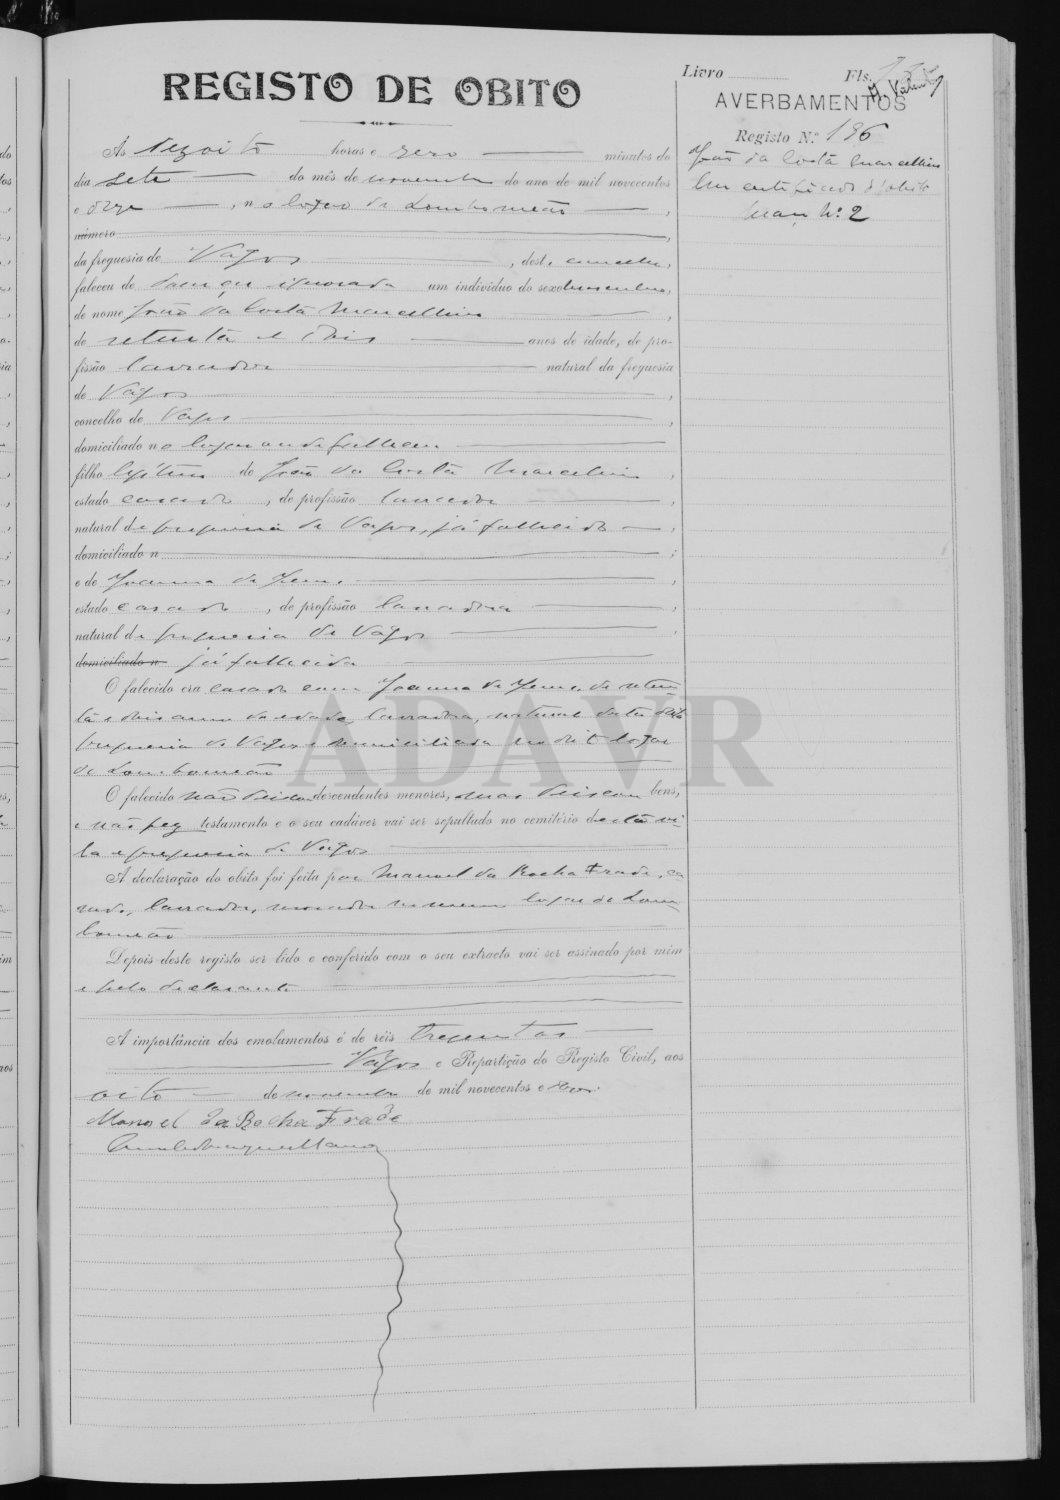 REGISTO DE OBITO
Livro Fls.
AVERBAMENTOS
Registo N.º 196
João da Costa Marcellino
Um certificado d'obito
Março Nº 2
Ás dezoito horas e zero minutos do
dia sete do mês de novembro do ano de mil novecentos
e onze, no logar de Lombomeão,
número
da freguesia de Vagos, deste concelho,
faleceu de doença ignorada um individuo do sexo masculino,
de nome João da Costa Marcellino,
de setenta e dois anos de idade, de pro-
fissão lavrador natural da freguesia
de Vagos,
concelho de Vagos
domiciliado no logar onde falleceu
filho legitimo de João da Costa Marcellino,
estado casado, de profissão lavrador,
natural da freguesia de Vagos, já fallecido,
domiciliado n ;
e de Joanna de Jesus,
estado casada, de profissão lavradora,
natural da freguesia de Vagos,
domiciliado n já fallecida
O falecido era casado com Joanna de Jesus, de seten-
ta e dois annos de edade, lavradora, natural desta dita
freguesia de Vagos e domiciliada no dito logar
de Lombomeão
O falecido não deixou descendentes menores, mas deixou bens,
e não fez testamento e o seu cadáver vai ser sepultado no cemitério desta vi-
la e freguesia de Vagos
A declaração do obito foi feita por Manuel da Rocha Frade, ca-
sado, lavrador, morador no mesmo logar de Lom-
bomeão
Depois deste registo ser lido e conferido com o seu extracto vai ser assinado por mim
e pelo declarante
A importância dos emolumentos é de réis trezentos
Vagos e Repartição do Registo Civil, aos
oito de novembro de mil novecentos e onze.
Manoel da Rocha Frade
ADAVR